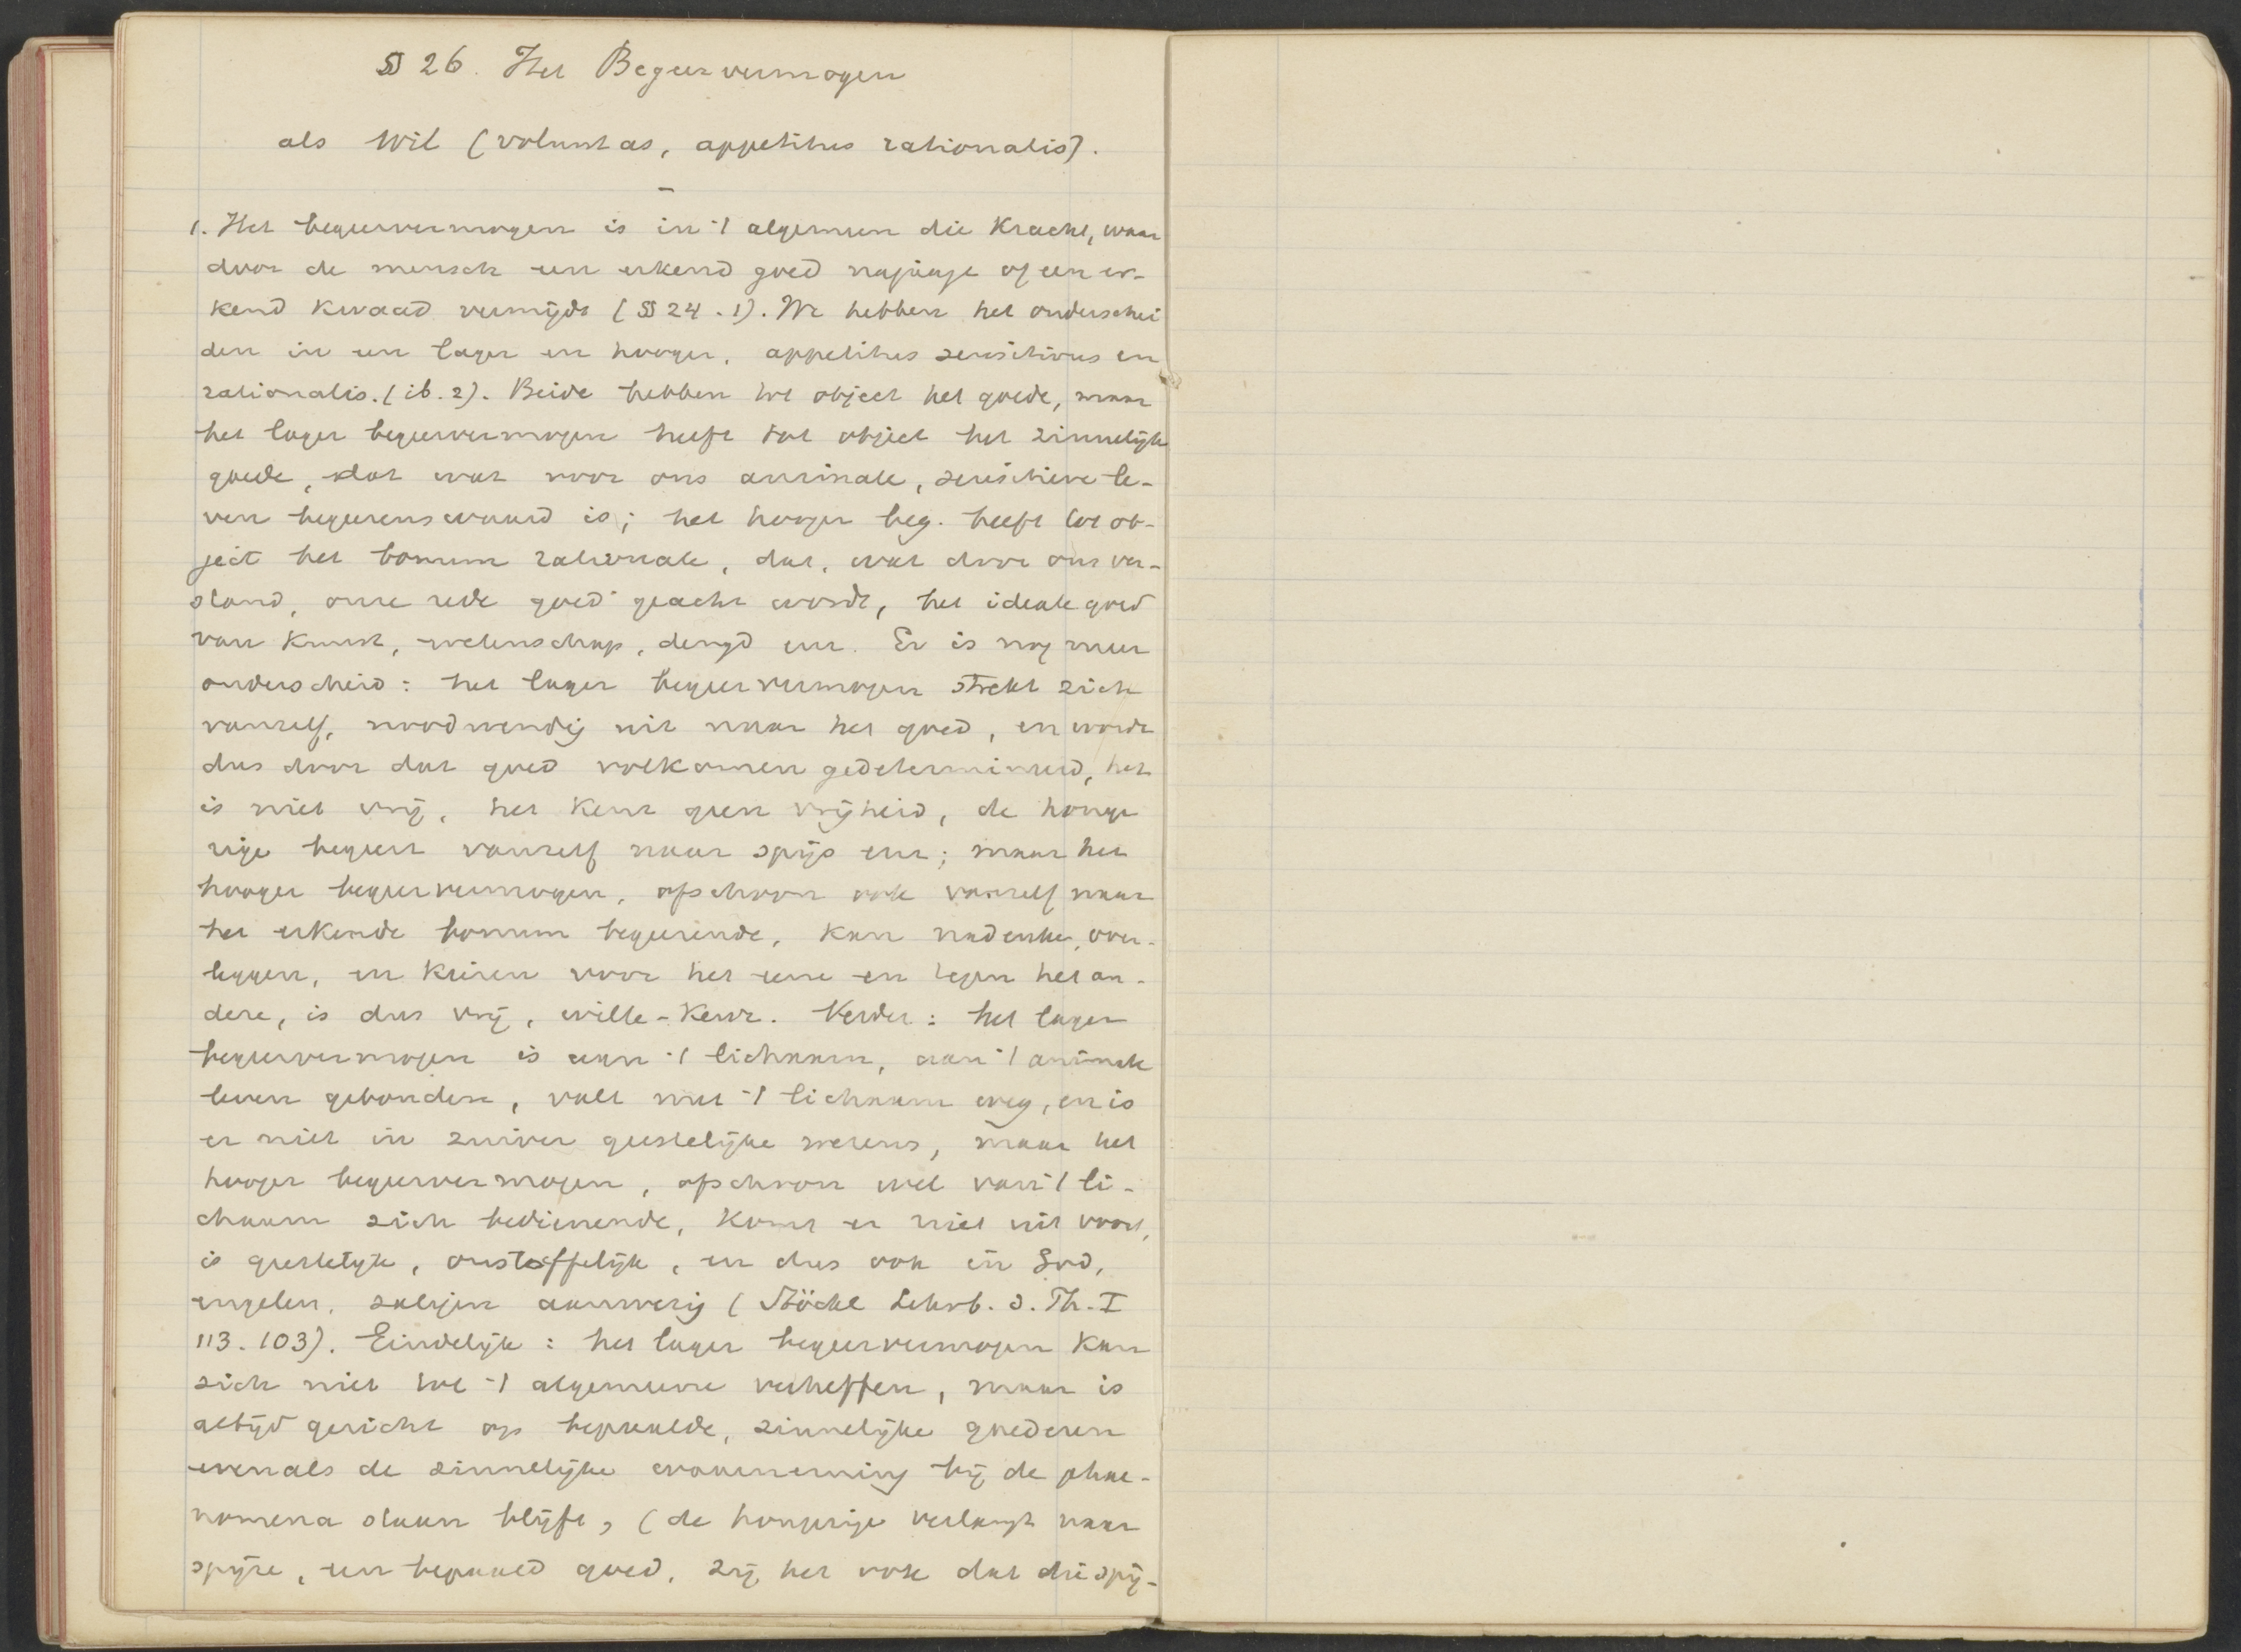 § 26. Het Begeervermogen
als Wil (voluntas, appetitus rationalis).
1. Het begeervermogen is in 't algemeen die Kracht, waar
door de mensch een erkend goed najaagt of een er-
kend kwaad vermijdt (§ 24.1). We hebben het onderschei
den in een lager en hooger, appetitus sensitivus en
rationalis. (ib. 2). Beide hebben tot object het goede, maar
het lager begeervermogen heeft tot object het zinnelijk
goede, dat wat voor ons animale, sensitieve le-
ven begeerenswaard is; het hooger beg. heeft tot ob-
ject het bonum rationale, dat, wat door ons ver-
stand, onze rede goed geacht wordt, het ideale goed
van Kunst, wetenschap, deugd enz. Er is nog meer
onderscheid: het lager begeervermogen strekt zich
vanzelf, noodwendig uit naar het goed, en wordt
dus door dat goed volkomen gedetermineerd, het
is niet vrij, het kent geen vrijheid, de honge
rige begeert vanzelf naar spijs enz; maar het
hooger begeervermogen, ofschoon ook vanzelf naar
het erkende bonum begeerende, kan nadenke, over-
leggen, en kiezen voor het eene en tegen het an-
dere, is dus vrij, wille-keur. Verder: het lager
begeervermogen is aan 't lichaam, aan 't animale
leven gebonden, valt met 't lichaam weg, en is
er niet in zuiver geestelijke wezens, maar het
hooger begeervermogen, ofschoon wel van 't li-
chaam zich bedienende, komt er niet uit voort,
is geestelijk, onstoffelijk, en dus ook in God,
engelen, zaligen aanwezig (Stöckl Lehrb. d. Ph. I
113. 103). Eindelijk: het lager begeervermogen kan
zich niet tot 't algemeene verheffen, maar is
altijd gericht op bepaalde, zinnelijke goederen
evenals de zinnelijke waarneming bij de phae-
nomena staan blijft, (de hongerige verlangt naar
spijze, een bepaald goed, zij het ook dat die spij-